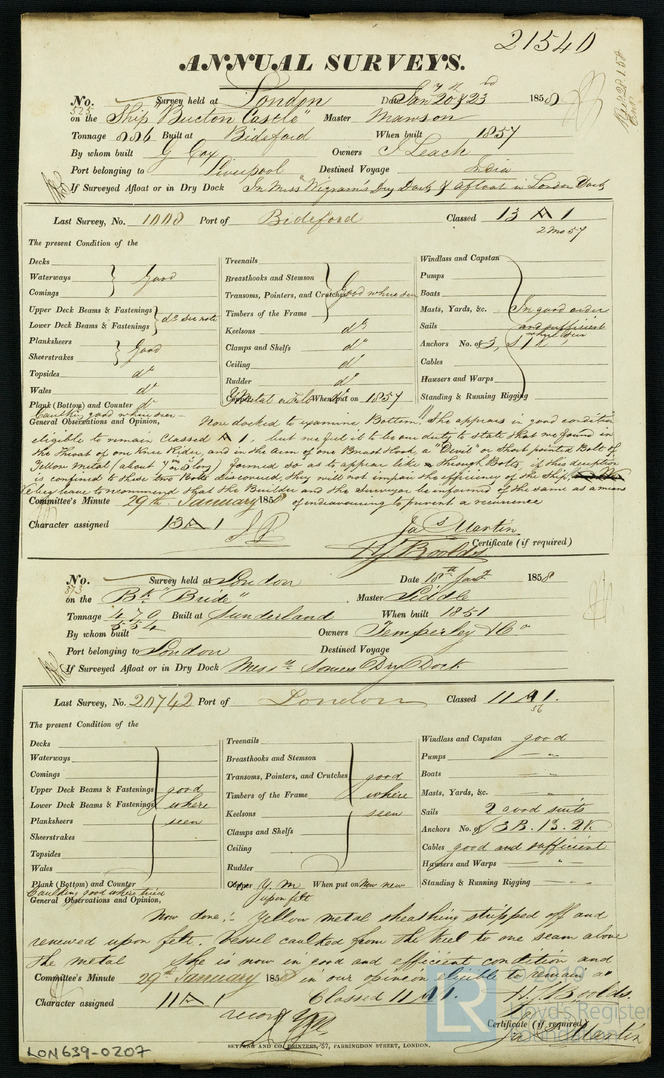 21540
ANNUAL SURVEYS.
No. 525 Survey held at London Date Jany 20th & 23rd 1858
on the Ship "Buxton Castle" Master Mawson
Tonnage 886 Built at Bideford When built 1857
By whom built G Cox Owners J Leach
Port belonging to Liverpool Destined Voyage India
If Surveyed Afloat or in Dry Dock In Messrs Wigrams Dry Dock & afloat in London Dock
Last Survey, No. 1008 Port of Bideford Classed 13 A 1
2 mo 57
The present Condition of the
Decks
Waterways
Comings
Good
Upper Deck Beams & Fastenings
Lower Deck Beams & Fastenings
do see note
Planksheers
Sheerstrakes
Good
Topsides do
Wales do
Plank (Bottom) and Counter do
Treenails
Breasthooks and Stemson
Transoms, Pointers, and Crutches
Timbers of the Frame
Good where seen
Keelsons do
Clamps and Shelfs do
Ceiling do
Rudder do
When put on 1857
Windlass and Capstan
Pumps
Boats
Masts, Yards, &c.
Sails
Anchors No. of 3, 1, 1
Cables
Hawsers and Warps
Standing & Running Rigging
In good order
and sufficient
where seen
Caulking good where seen
General Observations and Opinion, Now docked to examine Bottom. She appears in good condition
eligible to remain Classed A 1, but we feel it to be our duty to state that we found in
the Throat of one Knee Rider, and in the Arm of one Breast Hook a "Devil" or Short pointed Bolt of
Yellow Metal (about 7 in long) formed so as to appear like a through Bolt, if this deception
is confined to these two Bolts discovered, they will not impair the efficiency of the Ship,
We beg leave to recommend that the Builder and the Surveyor be informed of the same as a means
of endeavouring to prevent a recurrence
Committee's Minute 29th January 1858
Character assigned 13 A 1
Jas Martin
Certificate (if required)
No. 513 Survey held at London Date 18th Jany 1858
on the Bk "Bride" Master Piddle
Tonnage 470 554 Built at Sunderland When built 1851
By whom built Owners Temperley & Co
Port belonging to London Destined Voyage
If Surveyed Afloat or in Dry Dock Messrs Somes Dry Dock
Last Survey, No. 20742 Port of London Classed 11 A 1.
56
The present Condition of the
Decks
Waterways
Comings
Upper Deck Beams & Fastenings good
Lower Deck Beams & Fastenings where
Planksheers seen
Sheerstrakes
Topsides
Wales
Plank (Bottom) and Counter
Treenails
Breasthooks and Stemson
Transoms, Pointers, and Crutches good
Timbers of the Frame where
Keelsons seen
Clamps and Shelfs
Ceiling
Rudder
Copper Y. M When put on Now new
upon felt
Windlass and Capstan good
Pumps "
Boats "
Masts, Yards, &c. "
Sails 2 good suits
Anchors No. of 3 B. 1 S. 2 K.
Cables good and sufficient
Hawsers and Warps "
Standing & Running Rigging "
Caulking good where tried
General Observations and Opinion,
Now done, Yellow metal sheathing stripped off and
renewed upon felt. Vessel caulked from the keel to one seam above
the metal She is now in good and efficient condition and
in our opinion eligible to remain as
Classed 11 A 1.
Committee's Minute 29th January 1858
Character assigned 11 A 1
record YM
Certificate (if required)
Jas Martin
SEYFANG AND CO. PRINTERS, 57, FARRINGDON STREET, LONDON.
LON639-0207
LR
© 2019
Lloyd's Register
Foundation